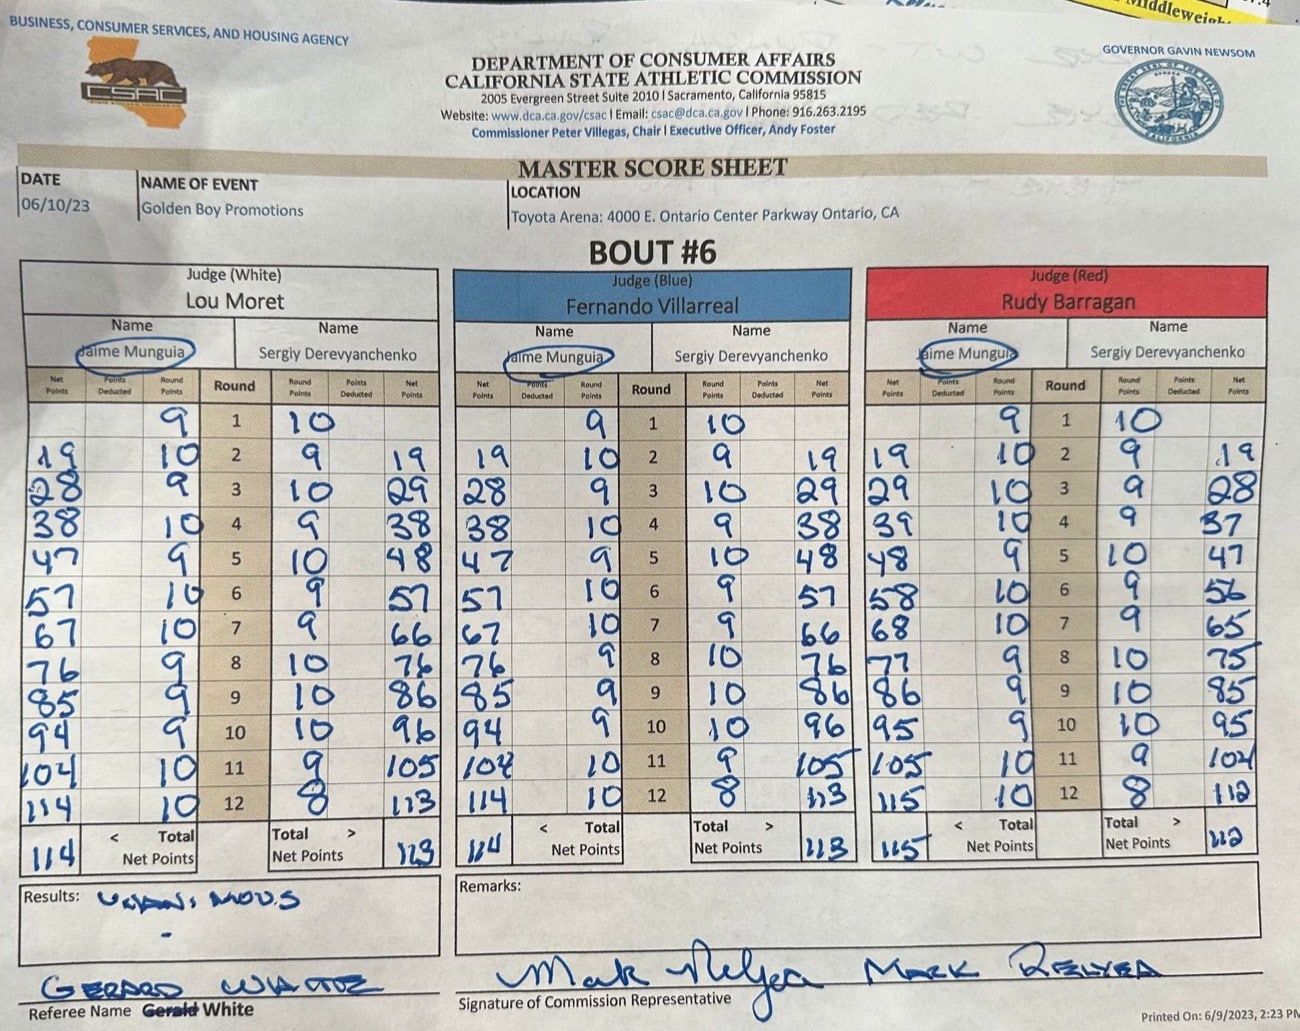 Middleweigh
BUSINESS, CONSUMER SERVICES, AND HOUSING AGENCY
GOVERNOR GAVIN NEWSOM
CSAC
DEPARTMENT OF CONSUMER AFFAIRS
CALIFORNIA STATE ATHLETIC COMMISSION
2005 Evergreen Street Suite 2010 l Sacramento, California 95815
Website: www.dca.ca.gov/csac l Email: csac@dca.ca.gov l Phone: 916.263.2195
Commissioner Peter Villegas, Chair l Executive Officer, Andy Foster
MASTER SCORE SHEET
DATE NAME OF EVENT LOCATION
06/10/23 Golden Boy Promotions Toyota Arena: 4000 E. Ontario Center Parkway Ontario, CA
BOUT #6
Judge (White) Judge (Blue) Judge (Red)
Lou Moret Fernando Villarreal Rudy Barragan
Name Name Name Name Name Name
Jaime Munguia Sergiy Derevyanchenko Jaime Munguia Sergiy Derevyanchenko Jaime Munguia Sergiy Derevyanchenko
Net Points Points Deducted Round Points Round Round Points Points Deducted Net Points Net Points Points Deducted Round Points Round Round Points Points Deducted Net Points Net Points Points Deducted Round Points Round Round Points Points Deducted Net Points
9 1 10 9 1 10 9 1 10
19 10 2 9 19 19 10 2 9 19 19 10 2 9 19
28 9 3 10 29 28 9 3 10 29 29 10 3 9 28
38 10 4 9 38 38 10 4 9 38 39 10 4 9 37
47 9 5 10 48 47 9 5 10 48 48 9 5 10 47
57 10 6 9 57 57 10 6 9 57 58 10 6 9 56
67 10 7 9 66 67 10 7 9 66 68 10 7 9 65
76 9 8 10 76 76 9 8 10 76 77 9 8 10 75
85 9 9 10 86 85 9 9 10 86 86 9 9 10 85
94 9 10 10 96 94 9 10 10 96 95 9 10 10 95
104 10 11 9 105 104 10 11 9 105 105 10 11 9 104
114 10 12 8 113 114 10 12 8 113 115 10 12 8 112
114 < Total Net Points Total > Net Points 113 114 < Total Net Points Total > Net Points 113 115 < Total Net Points Total > Net Points 112
Results: UNANIMOUS Remarks:
GERARD WHITE Mark Relyea MARK RELYEA
Referee Name Gerald White Signature of Commission Representative
Printed On: 6/9/2023, 2:23 PM